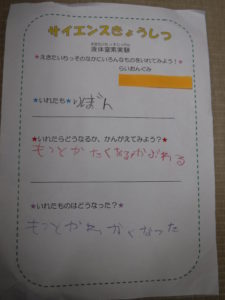 サイエンスきょうしつ
液体窒素実験
★えきたいちっそのなかにいろんなものをいれてみよう！★
らいおんぐみ
★いれたもの★
★いれたらどうなるか、かんがえてみよう？★
もっとかたくなる
★いれたものはどうなった？★
もっとかたくなった